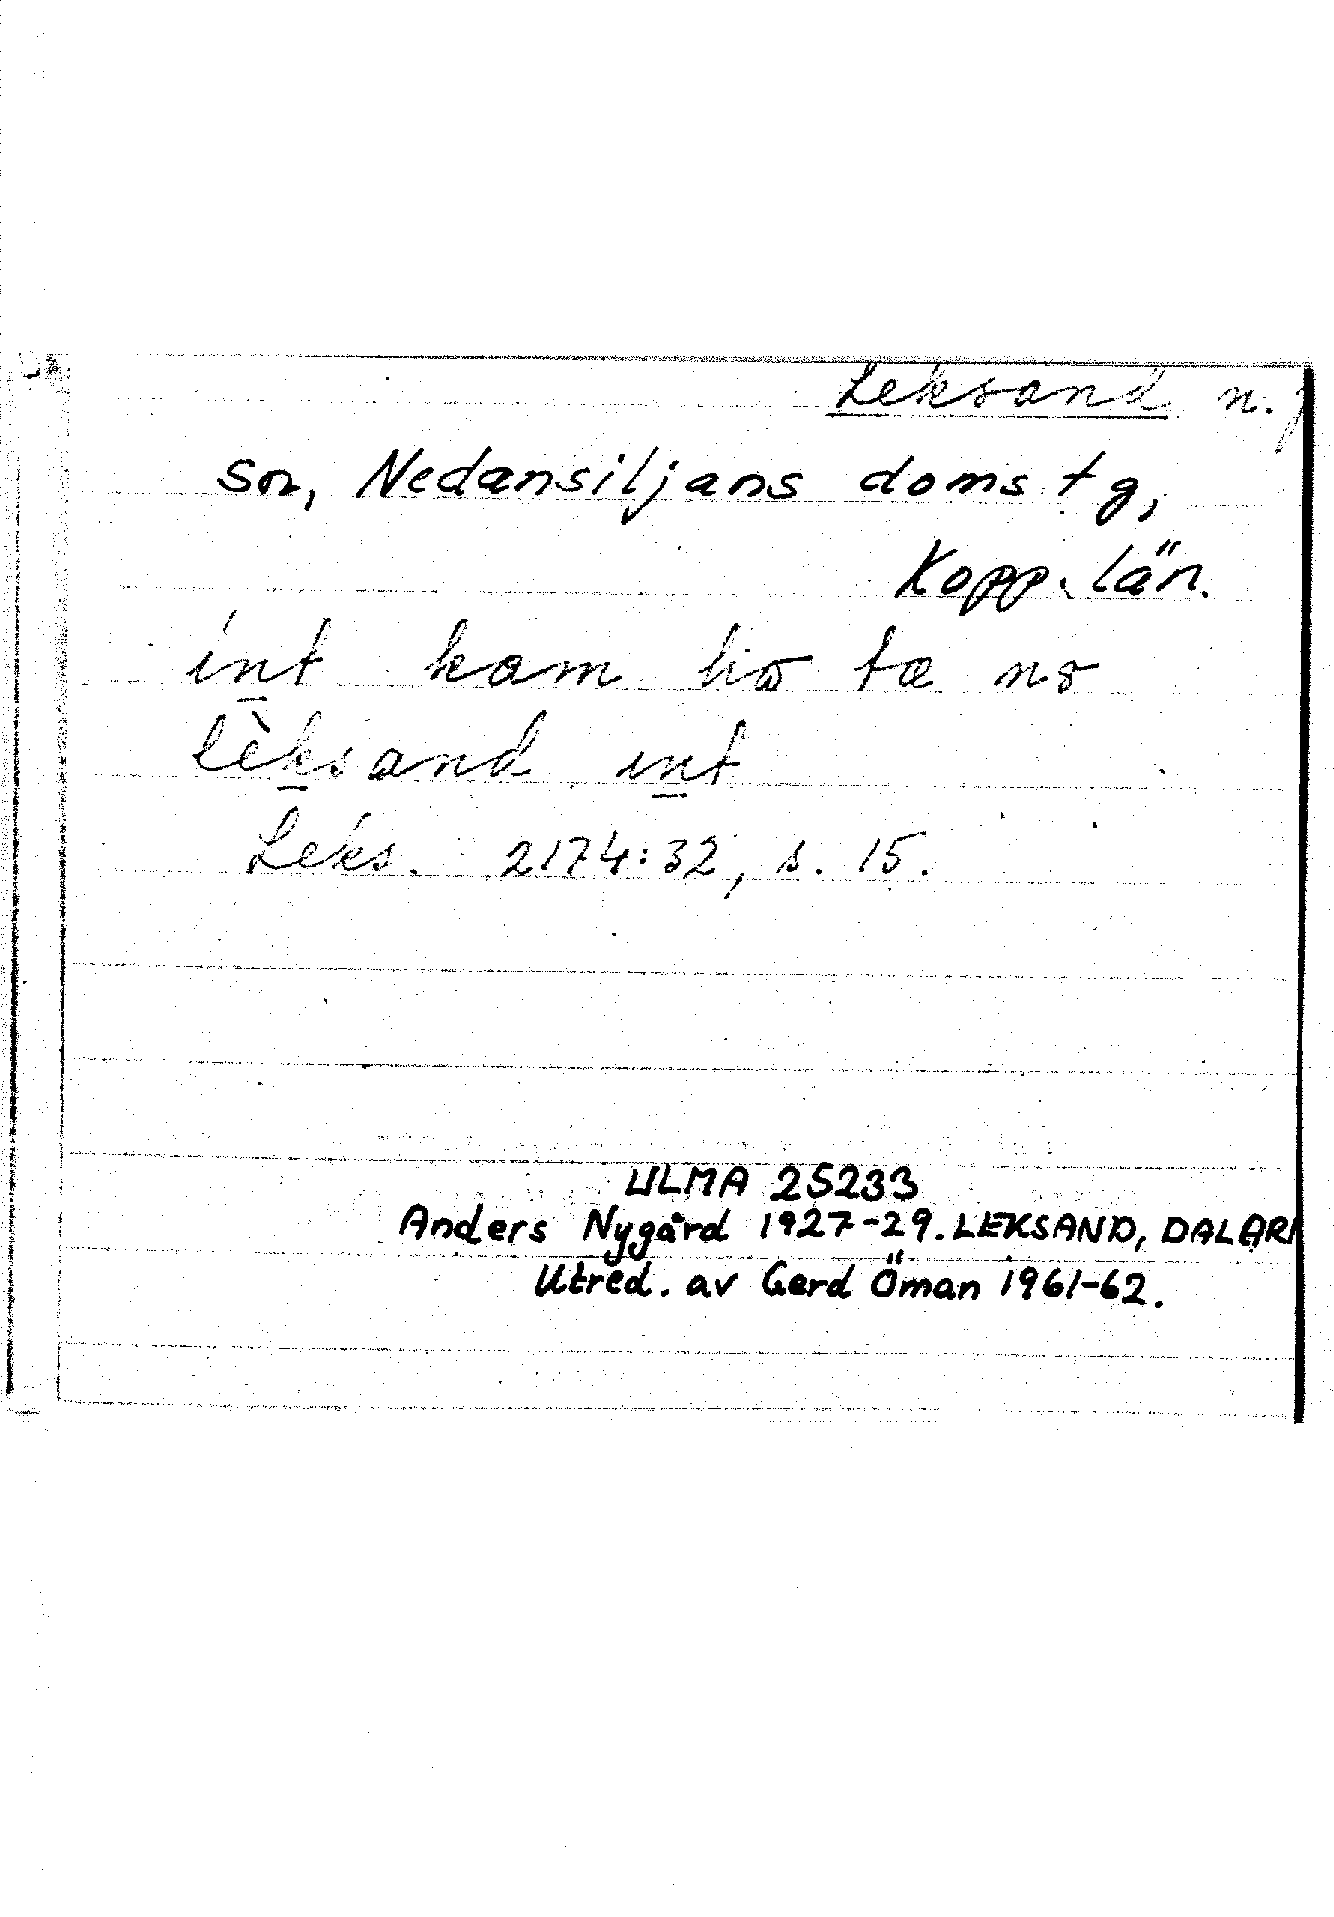 Leksand n.
sn, Nedansiljans domstg,
Kopp. län.
int kam ta
lèksand int
Leks. 2174:32, s. 15.
ULMA 25233
Anders Nygård 1927-29. LEKSAND, DALAR
Utred. av Gerd Öman 1961-62.